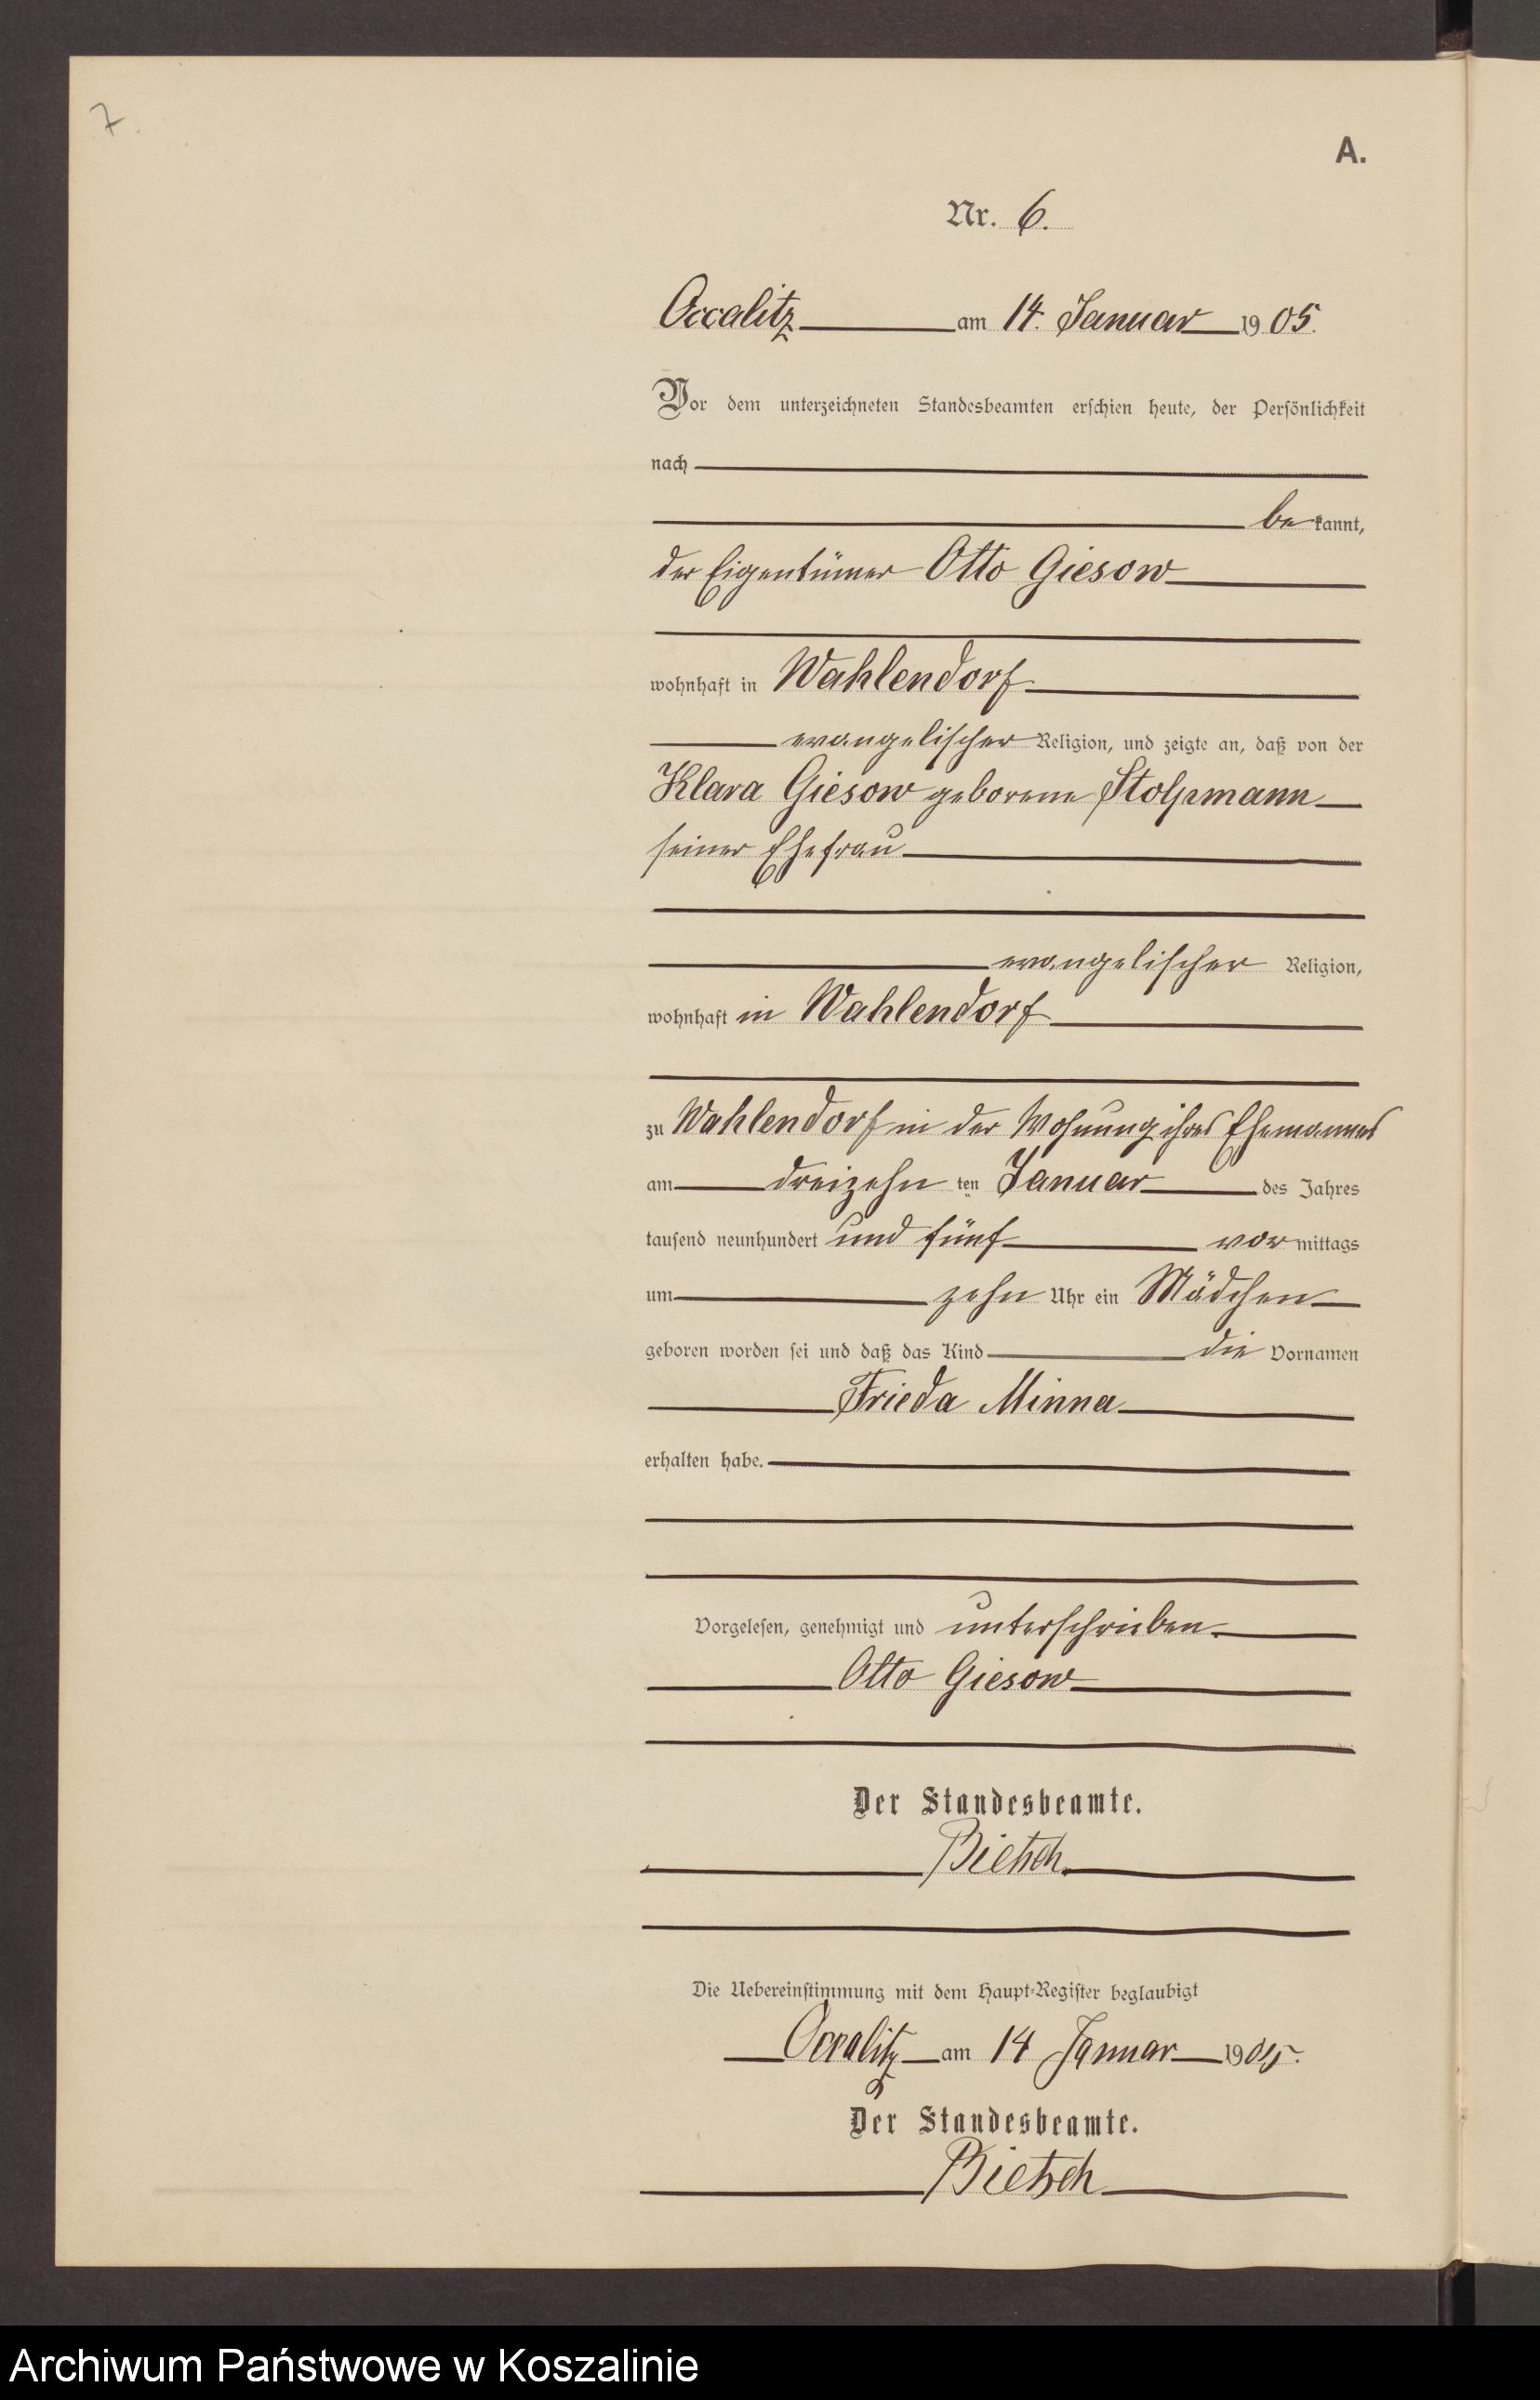 7.
A.
Nr. 6.
Occalitz am 14. Januar 1905.
Vor dem unterzeichneten Standesbeamten erschien heute, der Persönlichkeit
nach
bekannt,
der Eigentümer Otto Giesow
wohnhaft in Wahlendorf
evangelischer Religion, und zeigte an, daß von der
Klara Giesow geborene Stolpmann
seiner Ehefrau
evangelischer Religion,
wohnhaft in Wahlendorf
zu Wahlendorf in der Wohnung ihres Ehemannes
am dreizehn ten Januar des Jahres
tausend neunhundert und fünf vormittags
um zehn Uhr ein Mädchen
geboren worden sei und daß das Kind die Vornamen
Frieda Minna
erhalten habe.
Vorgelesen, genehmigt und unterschrieben.
Otto Giesow
Der Standesbeamte.
Bietsch.
Die Uebereinstimmung mit dem Haupt-Register beglaubigt
Occalitz am 14 Januar 1905.
Der Standesbeamte.
Bietsch
Archiwum Państwowe w Koszalinie